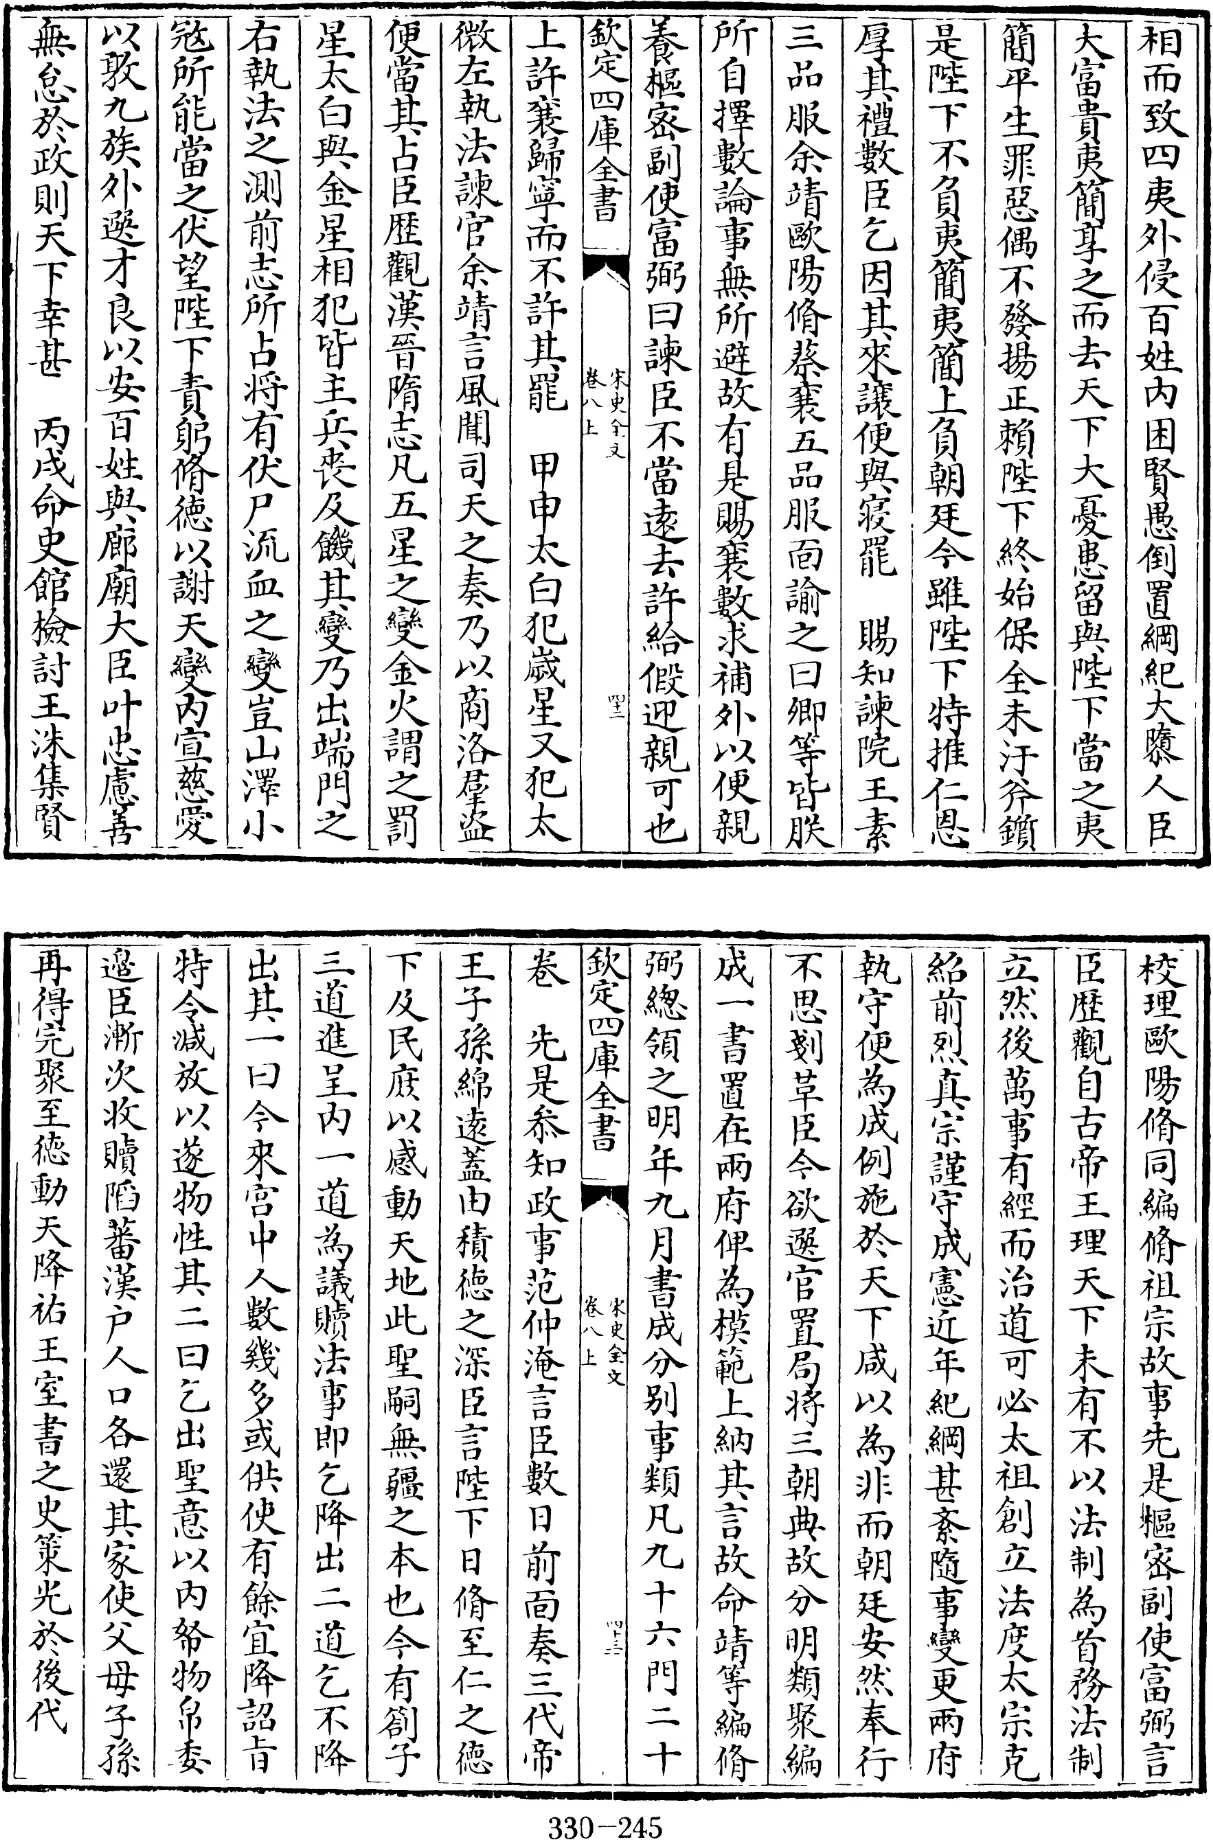 相而致四夷外侵百姓内困賢愚倒置綱紀大隳人臣
大富貴夷簡享之而去天下大憂患留與陛下當之夷
簡平生罪惡偶不發揚正賴陛下終始保全未汙斧鑕
是陛下不負夷簡夷簡上負朝廷今雖陛下特推仁恩
厚其禮數臣乞因其來讓便與寢罷　賜知諫院王素
三品服余靖歐陽脩蔡襄五品服面諭之曰卿等皆朕
所自擇數論事無所避故有是賜襄數求補外以便親
養樞密副使富弼曰諫臣不當遠去許給假迎親可也
欽定四庫全書
宋史全文
卷八上
四十二
上許襄歸寧而不許其罷　甲申太白犯歲星又犯太
微左執法諫官余靖言風聞司天之奏乃以商洛羣盜
便當其占臣歴觀漢晉隋志凡五星之變金火謂之罰
星太白與金星相犯皆主兵喪及饑其變乃出端門之
右執法之測前志所占将有伏尸流血之變豈山澤小
宼所能當之伏望陛下責躬脩徳以謝天變内宣慈愛
以敦九族外選才良以安百姓與廊廟大臣叶忠慮善
無怠於政則天下幸甚　丙戌命史館檢討王洙集賢
校理歐陽脩同編脩祖宗故事先是樞密副使富弼言
臣歴觀自古帝王理天下未有不以法制為首務法制
立然後萬事有經而治道可必太祖創立法度太宗克
紹前烈真宗謹守成憲近年紀綱甚紊隨事變更兩府
執守便為成例施於天下咸以為非而朝廷安然奉行
不思剗革臣今欲選官置局将三朝典故分明類聚編
成一書置在兩府俾為模範上納其言故命靖等編脩
弼總領之明年九月書成分别事類凡九十六門二十
欽定四庫全書
宋史全文
卷八上
四十三
卷　先是叅知政事范仲淹言臣數日前面奏三代帝
王子孫綿遠蓋由積徳之深臣言陛下日脩至仁之徳
下及民庻以感動天地此聖嗣無疆之本也今有劄子
三道進呈内一道為議贖法事即乞降出二道乞不降
出其一曰今來宫中人數幾多或供使有餘宜降詔旨
特令减放以遂物性其二曰乞出聖意以内帑物帛委
邉臣漸次收贖陷蕃漢户人口各還其家使父母子孫
再得完聚至徳動天降祐王室書之史策光於後代
330-245